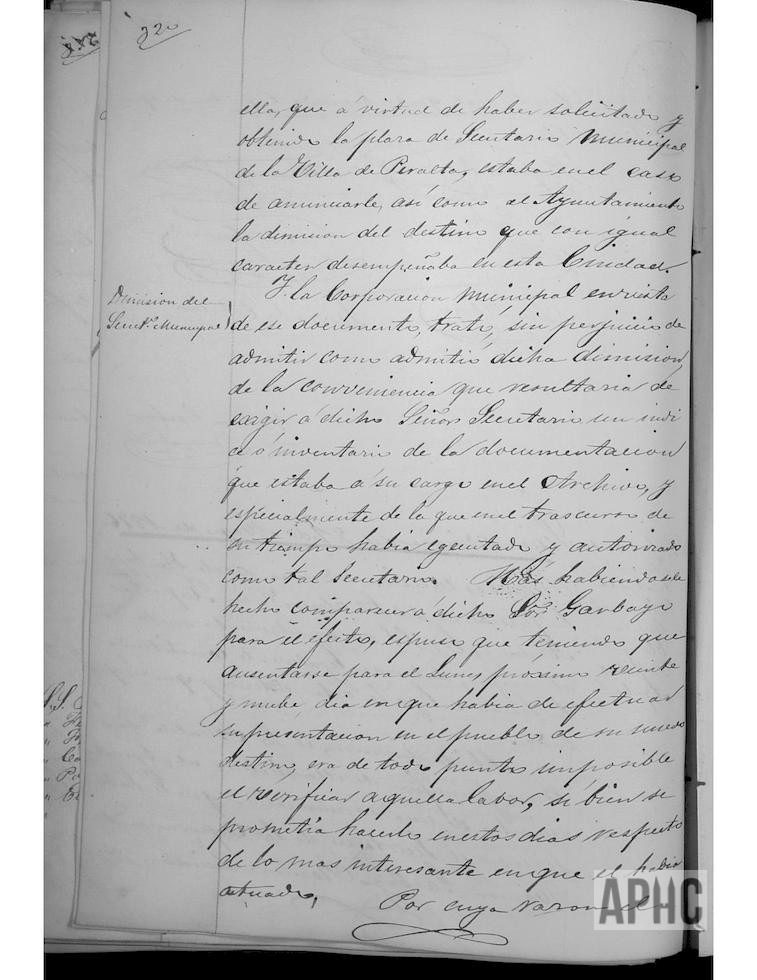 220
ella, que á virtud de haber solicitado y
obtenido la plaza de Secretario Municipal
de la Villa de Peralta, estaba en el caso
de anunciarle, así como al Ayuntamiento
la dimision del destino que con igual
caracter desempeñaba en esta Ciudad.
Dimision del
Secret.º Municipal
Y la Corporacion Municipal en vista
de ese documento, trató, sin perjuicio de
admitir como admitió dicha dimision
de la conveniencia que resultaria de
exigir á dicho Señor Secretario un indi
ce ó inventario de la documentacion
que estaba á su cargo en el Archivo, y
especialmente de la que en el trascurso de
su tiempo habia egecutado y autorizado
como tal Secretario. Mas habiendosele
hecho comparecer á dicho Sor. Garbayo
para el efecto, espuso que teniendo que
ausentarse para el Lunes próximo veinte
y nuebe, dia en que habia de efectuar
su presentacion en el pueblo de su nuevo
destino, era de todo punto imposible
el verificar aquella labor, si bien se
prometia hacerlo en estos dias respecto
de lo mas interesante en que el habia
actuado.
Por cuya razon el
APHC